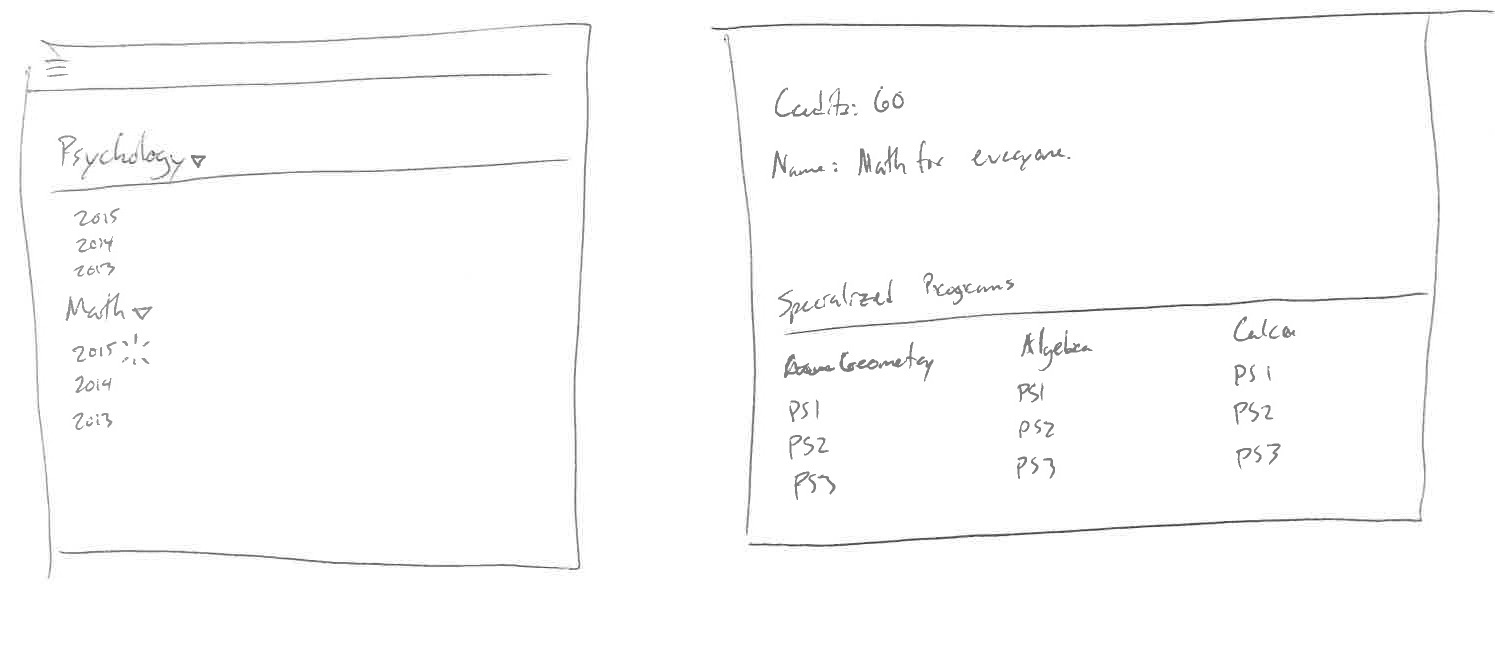 Psychology
2015
2014
2013
Math
2015
2014
2013
Credits: 60
Name: Math for everyone.
Specialized Programs
Geometry Algebra
PS1 PS1 PS1
PS2 PS2 PS2
PS3 PS3 PS3